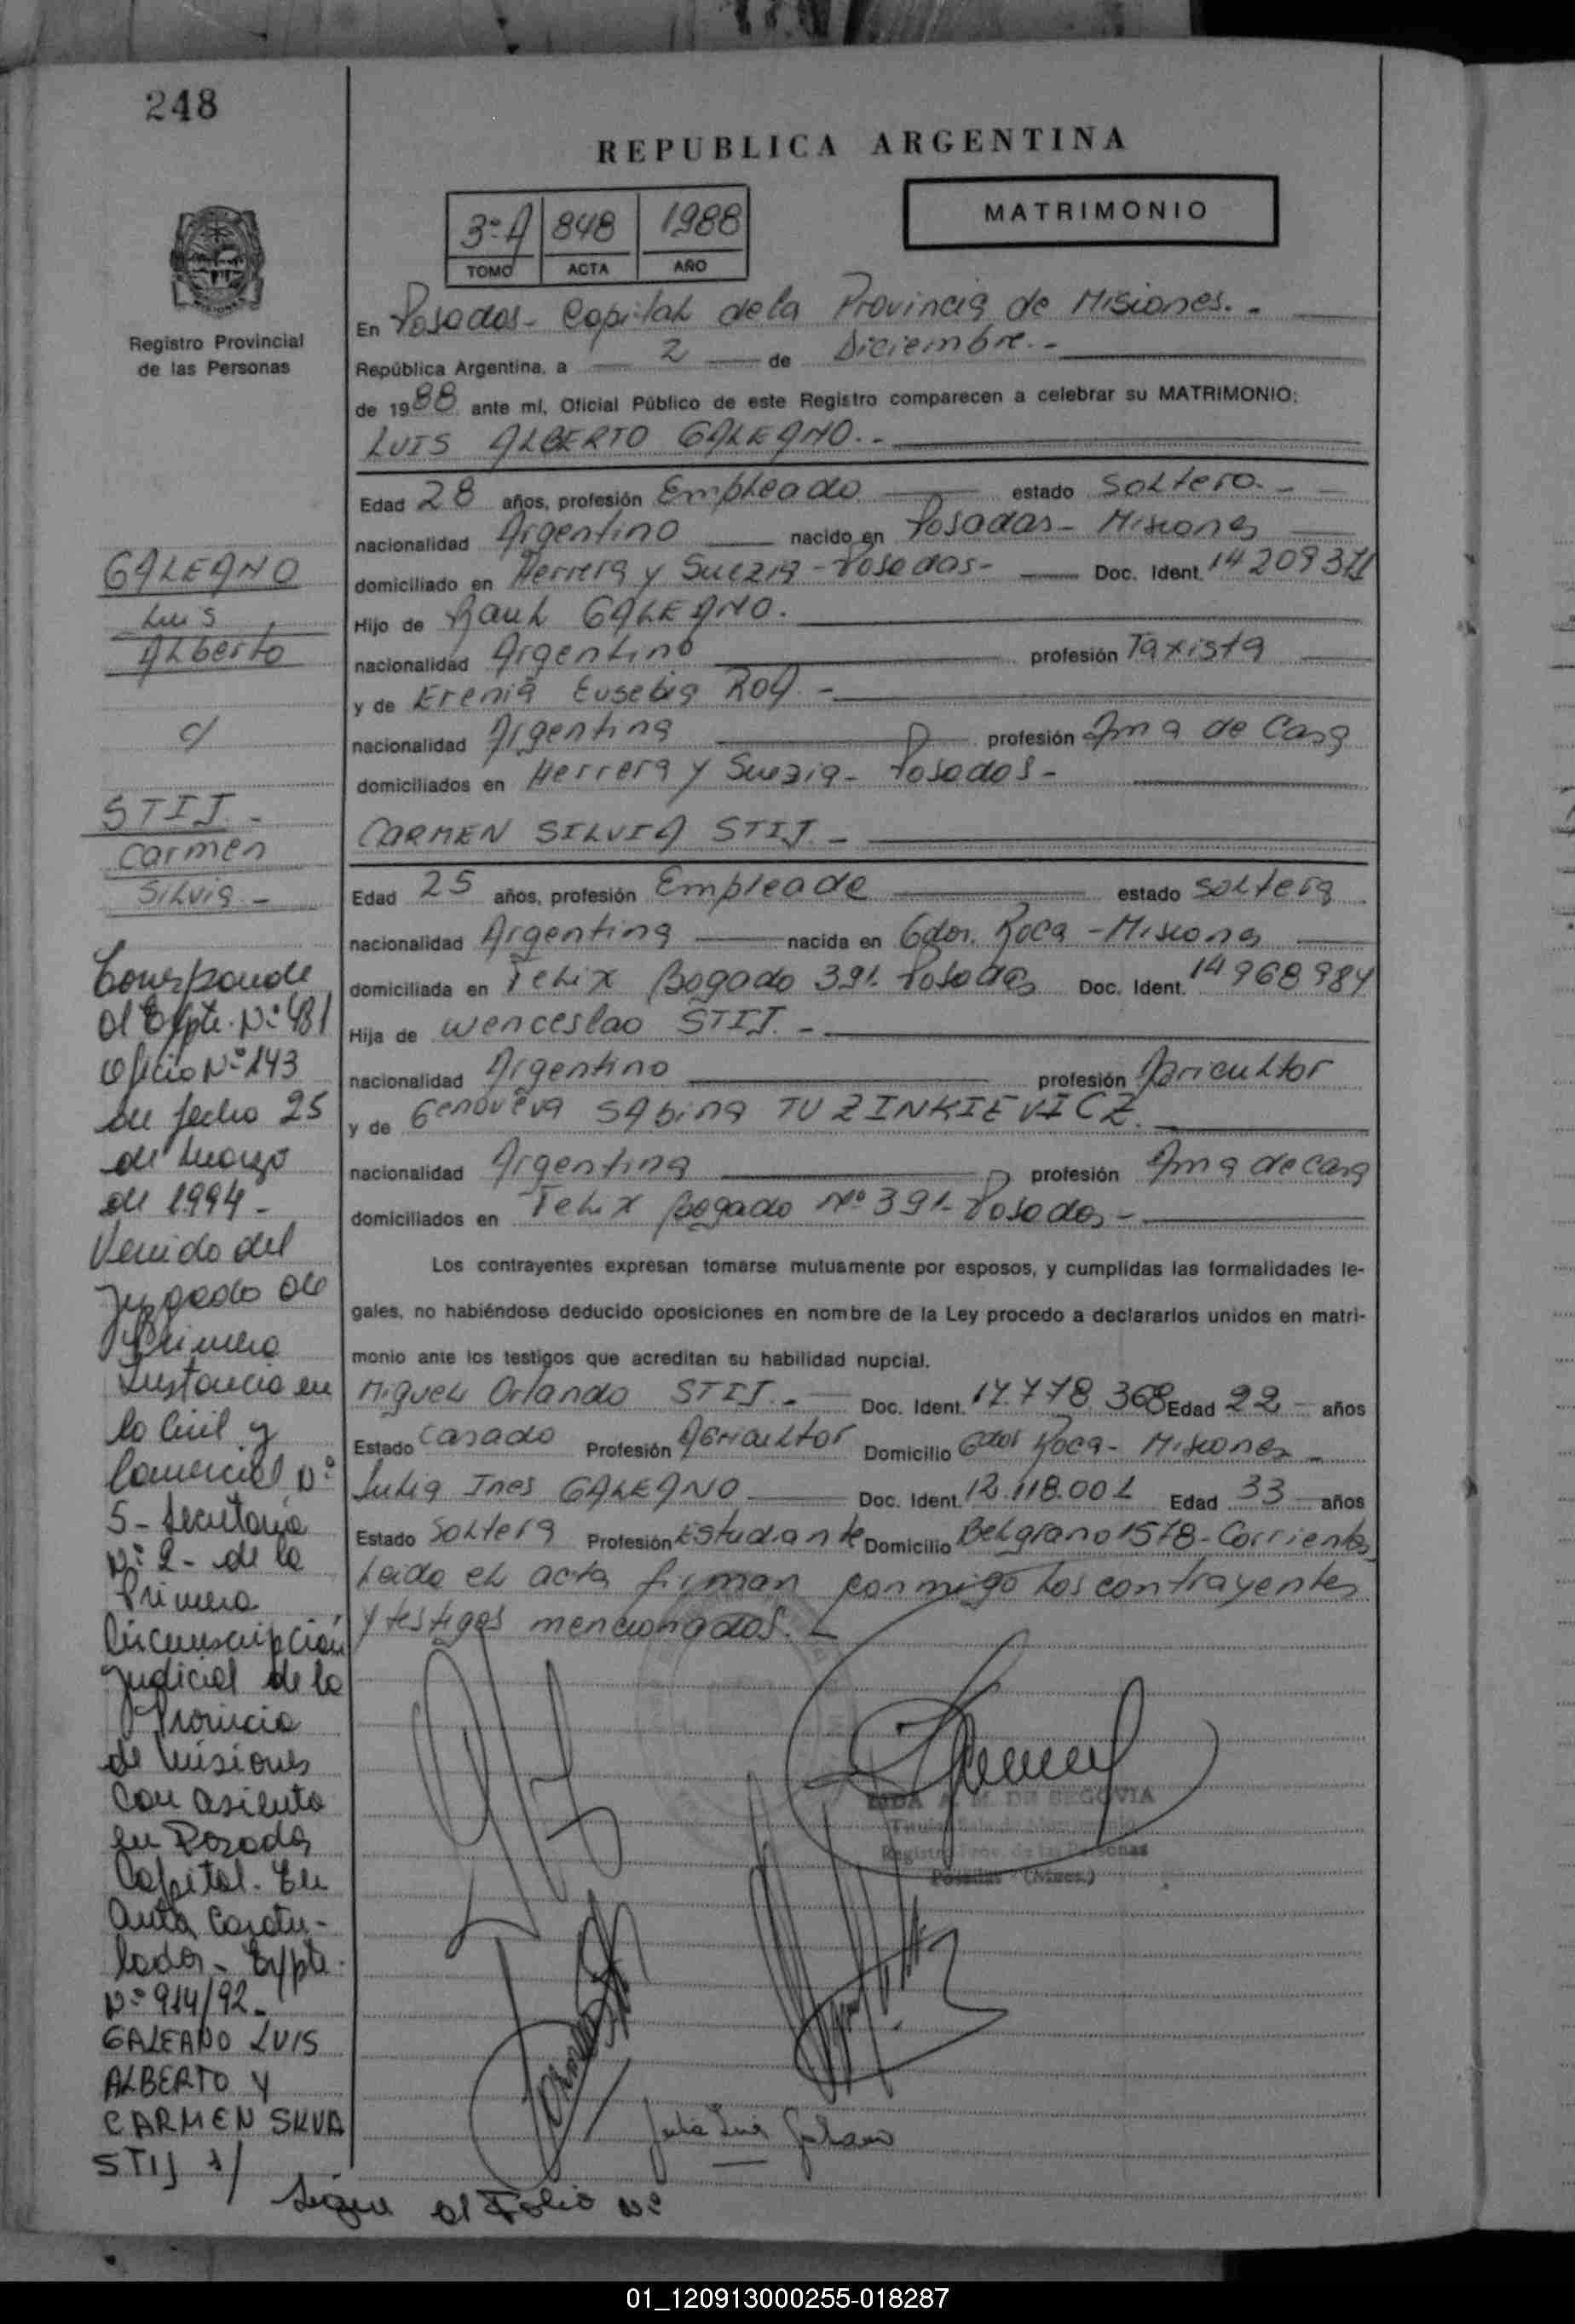 248
REPUBLICA ARGENTINA
MATRIMONIO
3ºA 848 1988
TOMO ACTA AÑO
Registro Provincial
de las Personas
En Posadas- Capital de la Provincia de Misiones.-
República Argentina, a 2 de Diciembre.-
de 1988 ante mí, Oficial Público de este Registro comparecen a celebrar su MATRIMONIO:
LUIS ALBERTO GALEANO.-
Edad 28 años, profesión Empleado estado Soltero.-
nacionalidad Argentino nacido en Posadas- Misiones
domiciliado en Herrera y Suezia-Posadas- Doc. Ident.
Hijo de Raul GALEANO.
nacionalidad Argentino profesión Taxista
y de Erenia Eusebia ROA.-
nacionalidad Argentina profesión Ama de Casa
domiciliados en Herrera y Suezia- Posadas-
CARMEN SILVIA STIJ.-
Edad 25 años, profesión Empleada estado Soltera
nacionalidad Argentina nacida en Gdor. Roca -Misiones
domiciliada en Felix Bogado 391. Posadas Doc. Ident. 14968984
Hija de Wenceslao STIJ.-
nacionalidad Argentino profesión Agricultor
y de Genoveva Sabina TUZINKIEVICZ.
nacionalidad Argentina profesión Ama de casa
domiciliados en Felix Bogado Nº 391- Posadas-
Los contrayentes expresan tomarse mutuamente por esposos, y cumplidas las formalidades le-
gales, no habiéndose deducido oposiciones en nombre de la Ley procedo a declararlos unidos en matri-
monio ante los testigos que acreditan su habilidad nupcial.
Miguel Orlando STIJ.- Doc. Ident. 17.778.368 Edad 22 años
Estado Casado Profesión Agricultor Domicilio Gdor Roca- Misiones
Julia Ines GALEANO Doc. Ident. 12.118.001 Edad 33 años
Estado Soltera Profesión Estudiante Domicilio Belgrano 1578-Corrientes
Leida el acta firman conmigo los contrayentes
y testigos mencionados.
A. M. DE SEGOVIA
Registro Prov. de las Personas
Posadas (Mnes.)
Julia Ines Galeano
GALEANO
Luis
Alberto
c/
STIJ.-
Carmen
Silvia.-
Corresponde
al Expte. Nº 481
Oficio Nº 143
de fecha 25
de Marzo
de 1994-
Venido del
Juzgado de
Primera
Instancia en
lo Civil y
Comercial Nº
5- Secretaria
Nº 2- de la
Primera
Circunscripción
Judicial de la
Provincia
de Misiones
con asiento
en Posadas
Capital. En
autos Caratu-
lados- Expte.
Nº 914/92-
GALEANO LUIS
ALBERTO Y
CARMEN SILVIA
STIJ s/
Sigue al Folio Nº
01_120913000255-018287